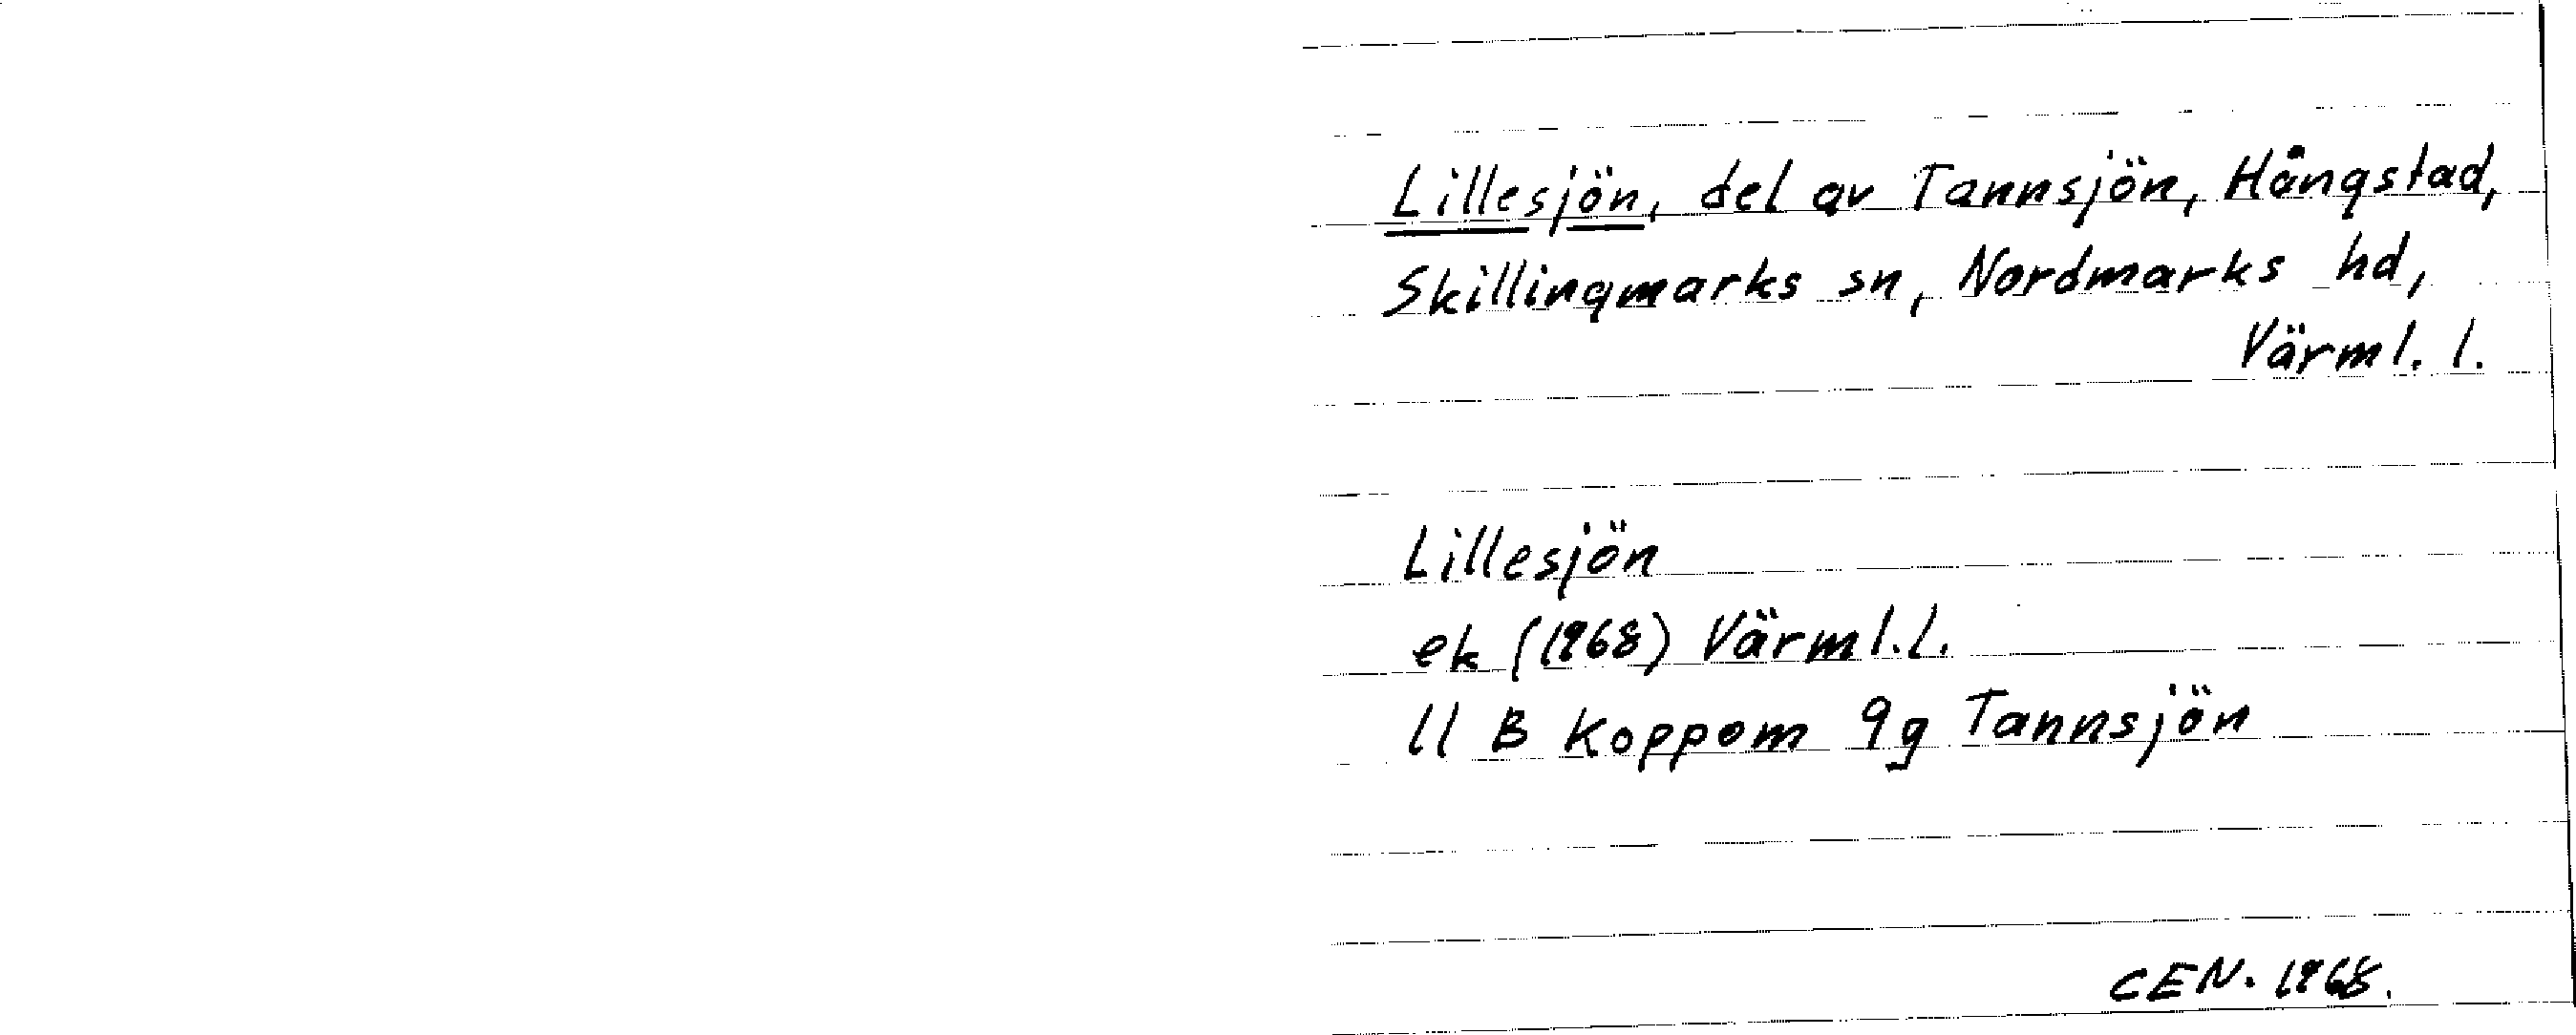 Lillesjön, del av Tannsjön, Hångstad,
Skillingmarks sn, Nordmarks hd,
Värml. l.
Lillesjön
ek (1968) Värml.l.
11 B Koppom 9g Tannsjön
CEN. 1968.